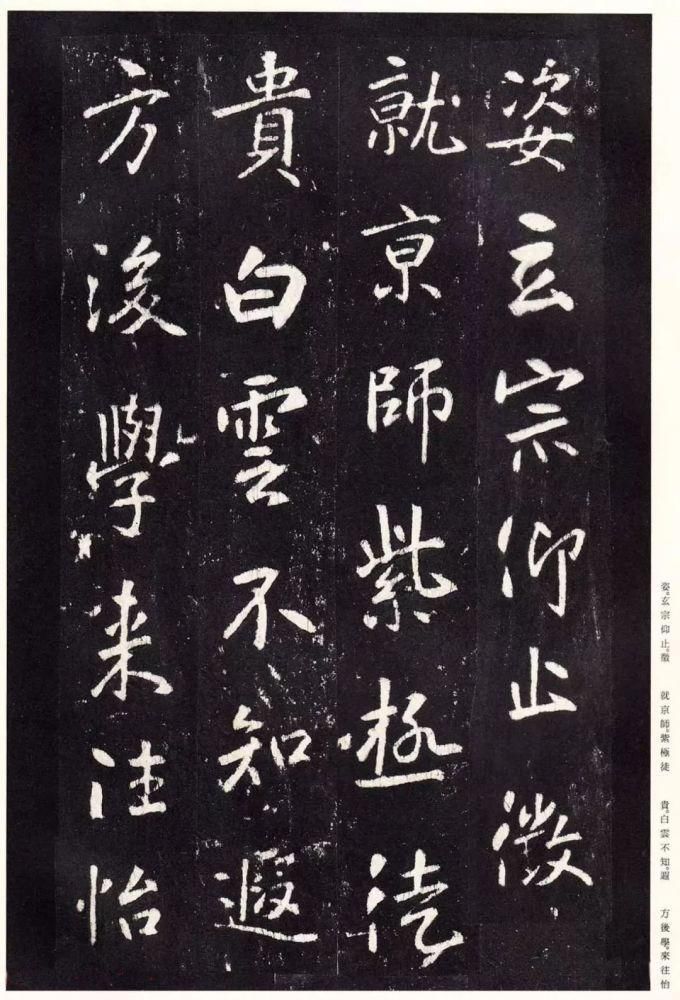 姿玄宗仰止徵
就京師紫極徒
貴白雲不知遐
方後學來往怡
姿。玄宗仰止。徵　就京師。紫極徒　貴。白雲不知。遐　方後學。來往怡